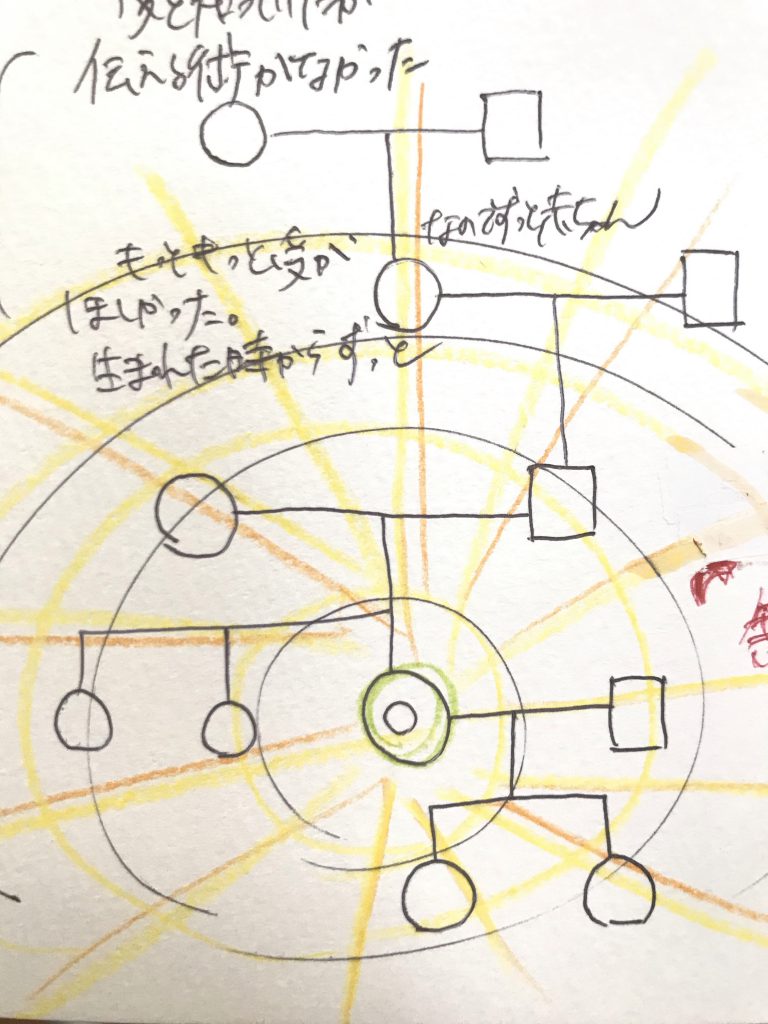 伝える術がなかった
なのでずっと赤ちゃん
もっともっと愛が
ほしかった。
生まれた時からずっと